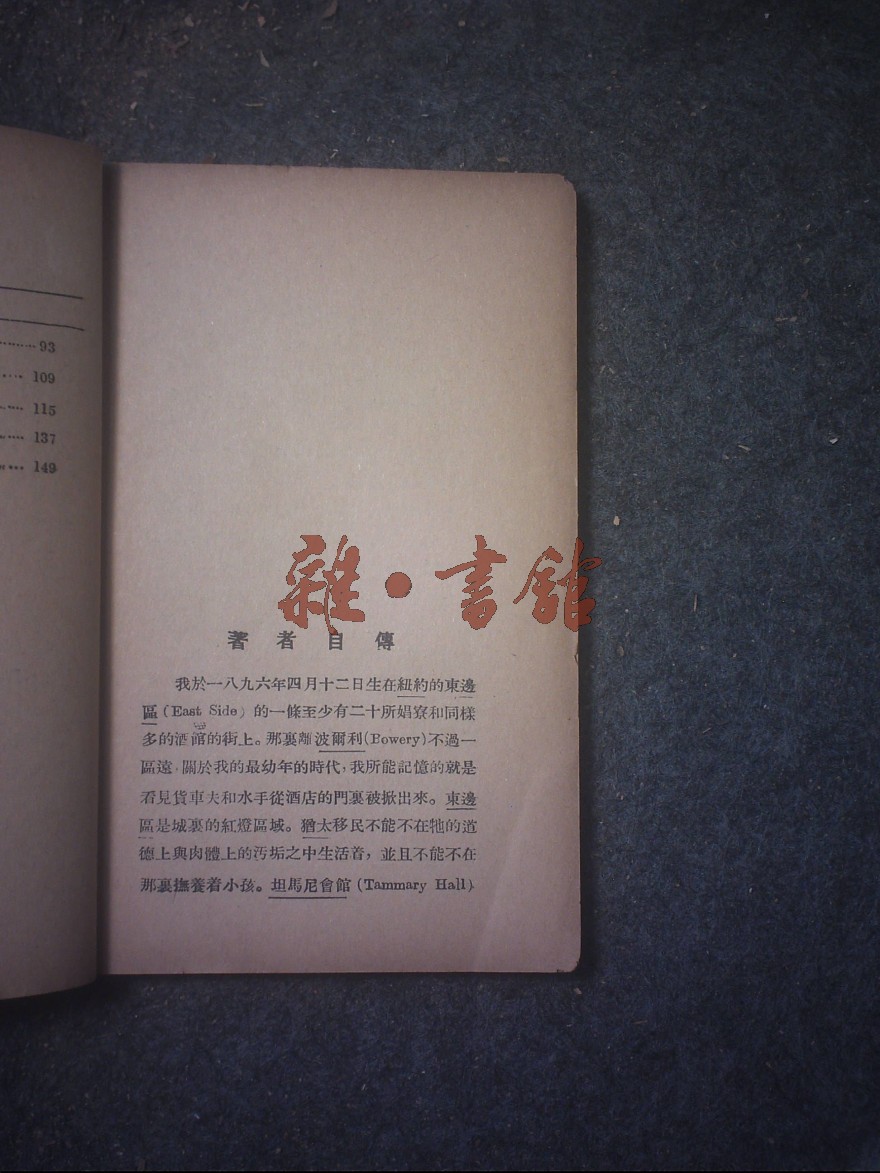 93
109
115
137
149
雜·書館
著者自傳
我於一八九六年四月十二日生在紐約的東邊
區(East Side)的一條至少有二十所娼寮和同樣
多的酒館的街上。那裏離波爾利(Bowery)不過一
區遠.關於我的最幼年的時代,我所能記憶的就是
看見貨車夫和水手從酒店的門裏被掀出來。東邊
區是城裏的紅燈區域。猶太移民不能不在牠的道
德上與肉體上的汚垢之中生活着,並且不能不在
那裏撫養着小孩。坦馬尼會館(Tammary Hall)